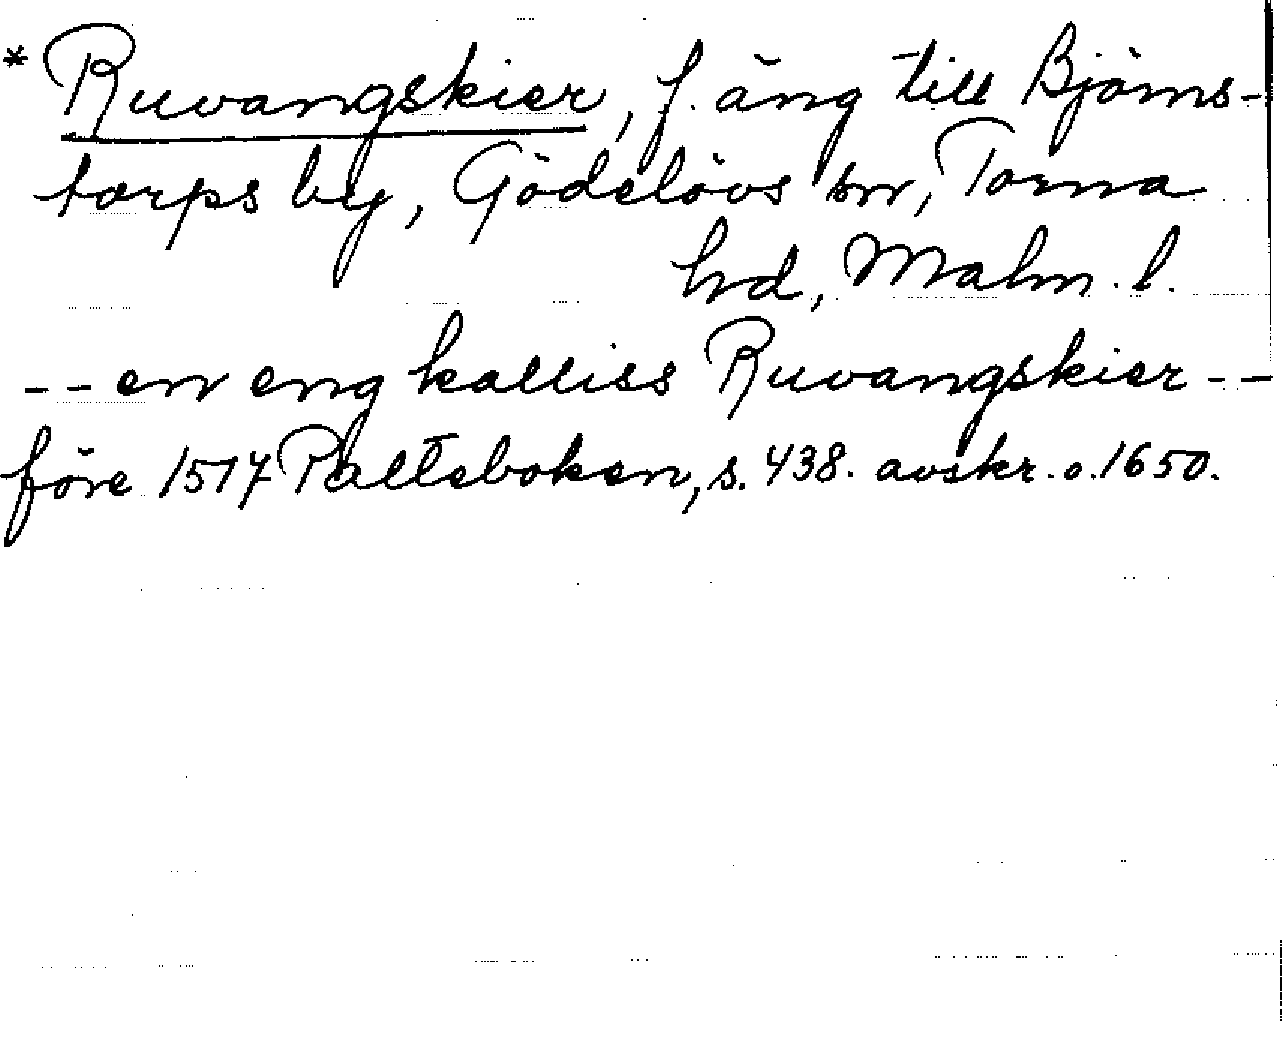 * Ruvangskier, f. äng till Björns-
torps by, Gödelövs sn, Torna
hd, Malm. l.
-- en eng kalliss Ruvangskier --
före 1517 Palteboken, s. 438. avskr. o. 1650.